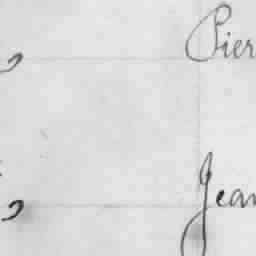 Pier
Jean